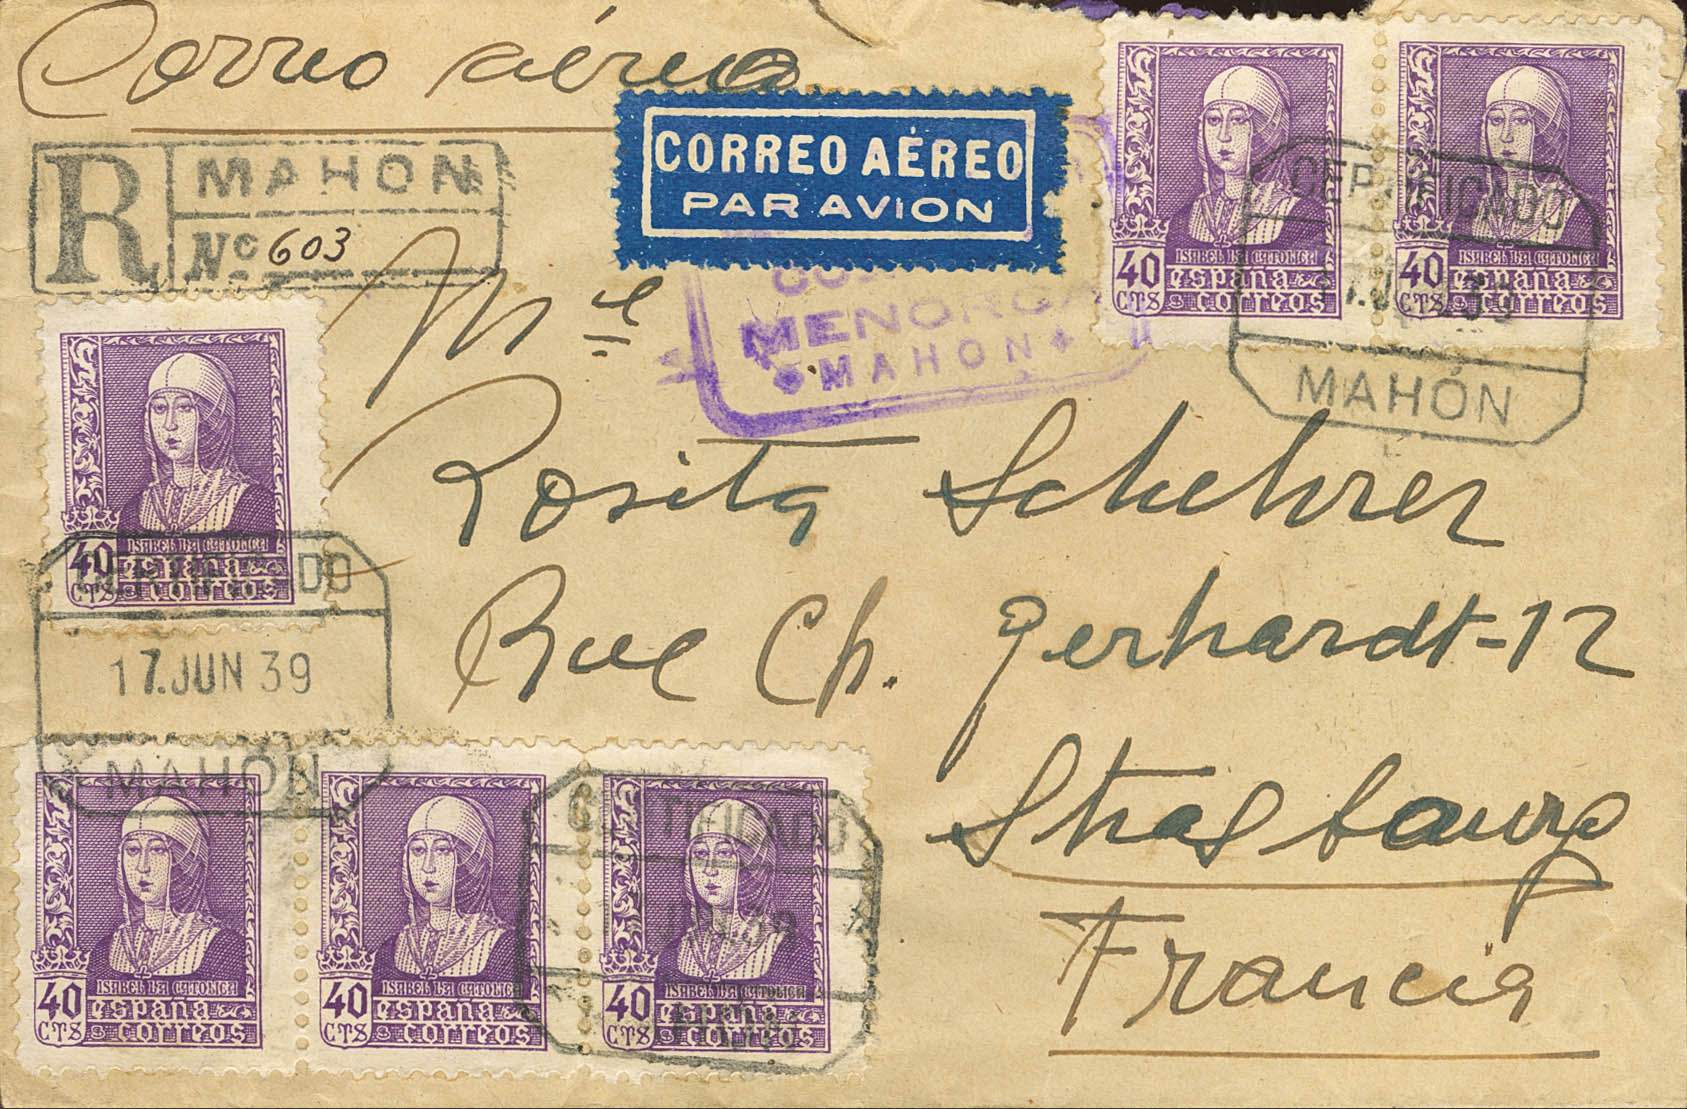 Correo aéreo
CORREO AÉREO
PAR AVION
R MAHON
Nº 603
MENORCA
MAHON
40 CTS
ISABEL LA CATOLICA
españa
correos
40 CTS
ISABEL LA CATOLICA
españa
correos
CERTIFICADO
MAHÓN
Mle
Rosita Schehrer
Rue Ch. Gerhardt-12
Strasbourg
Francia
40 CTS
ISABEL LA CATOLICA
españa
correos
CERTIFICADO
17.JUN 39
MAHÓN
40 CTS
ISABEL LA CATOLICA
españa
correos
40 CTS
ISABEL LA CATOLICA
españa
correos
40 CTS
ISABEL LA CATOLICA
españa
correos
CERTIFICADO